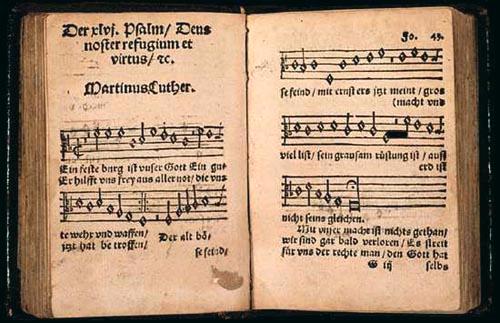 Der xlvj. Psalm/ Deus
noster refugium et
virtus/ ꝛc.
Martinus Luther.
Ein feste burg ist vnser Gott Ein gut
Er hilfft vns frey aus aller not/ die vns
te wehr vnd waffen/
jtzt hat be troffen/
Der alt bö/
se feind/
Fo. 43.
se feind/ mit ernst ers jtzt meint/ gros
(macht vnd
viel list/ sein grausam rüstung ist/ auff
erd ist
nicht seins gleichen.
Mit vnser macht ist nichts gethan/
wir sind gar bald verloren/ Es streit
für vns der rechte man/ den Gott hat
G iij selbs